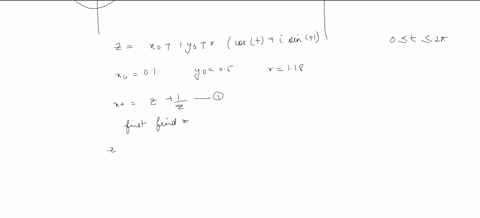 z = x0 + i y0 + r (cos(t) + i sin(t)) 0 ≤ t ≤ 2π
x0 = 0.1 y0 = 0.5 r = 1.18
x+ = z + 1/z — ①
first find z
z